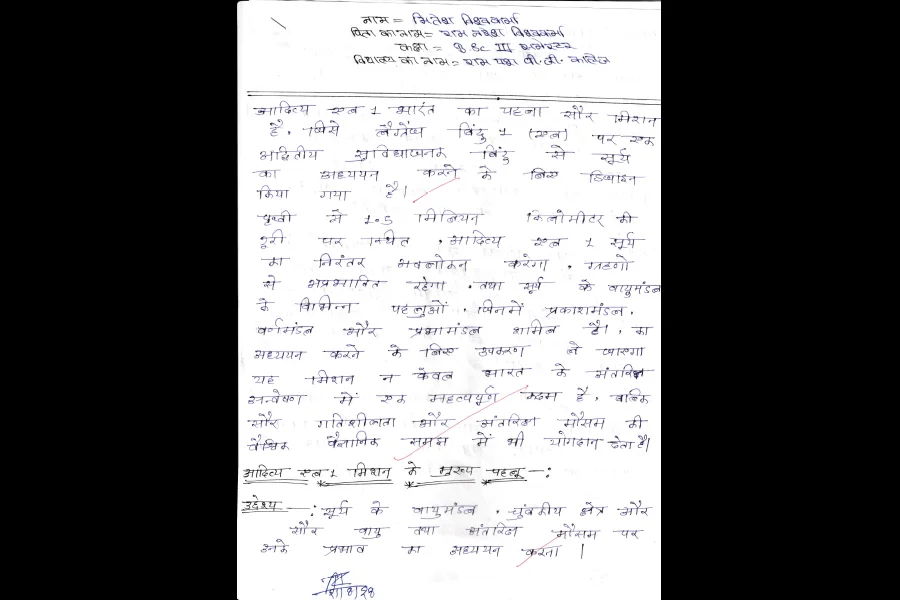 नाम = मितेश विश्वकर्मा
पिता का नाम = राम नरेश विश्वकर्मा
कक्षा = B.Sc III सेमेस्टर
विद्यालय का नाम = राम पी.जी. कालेज
आदित्य एल 1 भारत का पहला सौर मिशन
है, जिसे लैग्रेंज बिंदु 1 (एल) पर एक
अद्वितीय सुविधाजनक बिंदु से सूर्य
का अध्ययन करने के लिए डिजाइन
किया गया है।
पृथ्वी से 1.5 मिलियन किलोमीटर की
दूरी पर स्थित, आदित्य एल 1 सूर्य
का निरंतर अवलोकन करेगा, ग्रहणो
से अप्रभावित रहेगा, तथा सूर्य के वायुमंडल
के विभिन्न पहलुओं, जिनमें प्रकाशमंडल,
वर्णमंडल और प्रभामंडल शामिल है।, का
अध्ययन करने के लिए उपकरण ले जाएगा
यह मिशन न केवल भारत के अंतरिक्ष
अन्वेषण में एक महत्वपूर्ण कदम है, बल्कि
सौर गतिशीलता और अंतरिक्ष मौसम की
वैश्विक वैज्ञानिक समझ में भी योगदान देता है।
आदित्य एल 1 मिशन के मुख्य पहलू -:
उद्देश्य -: सूर्य के वायुमंडल, चुंबकीय क्षेत्र और
सौर वायु तथा अंतरिक्ष मौसम पर
उनके प्रभाव का अध्ययन करना |